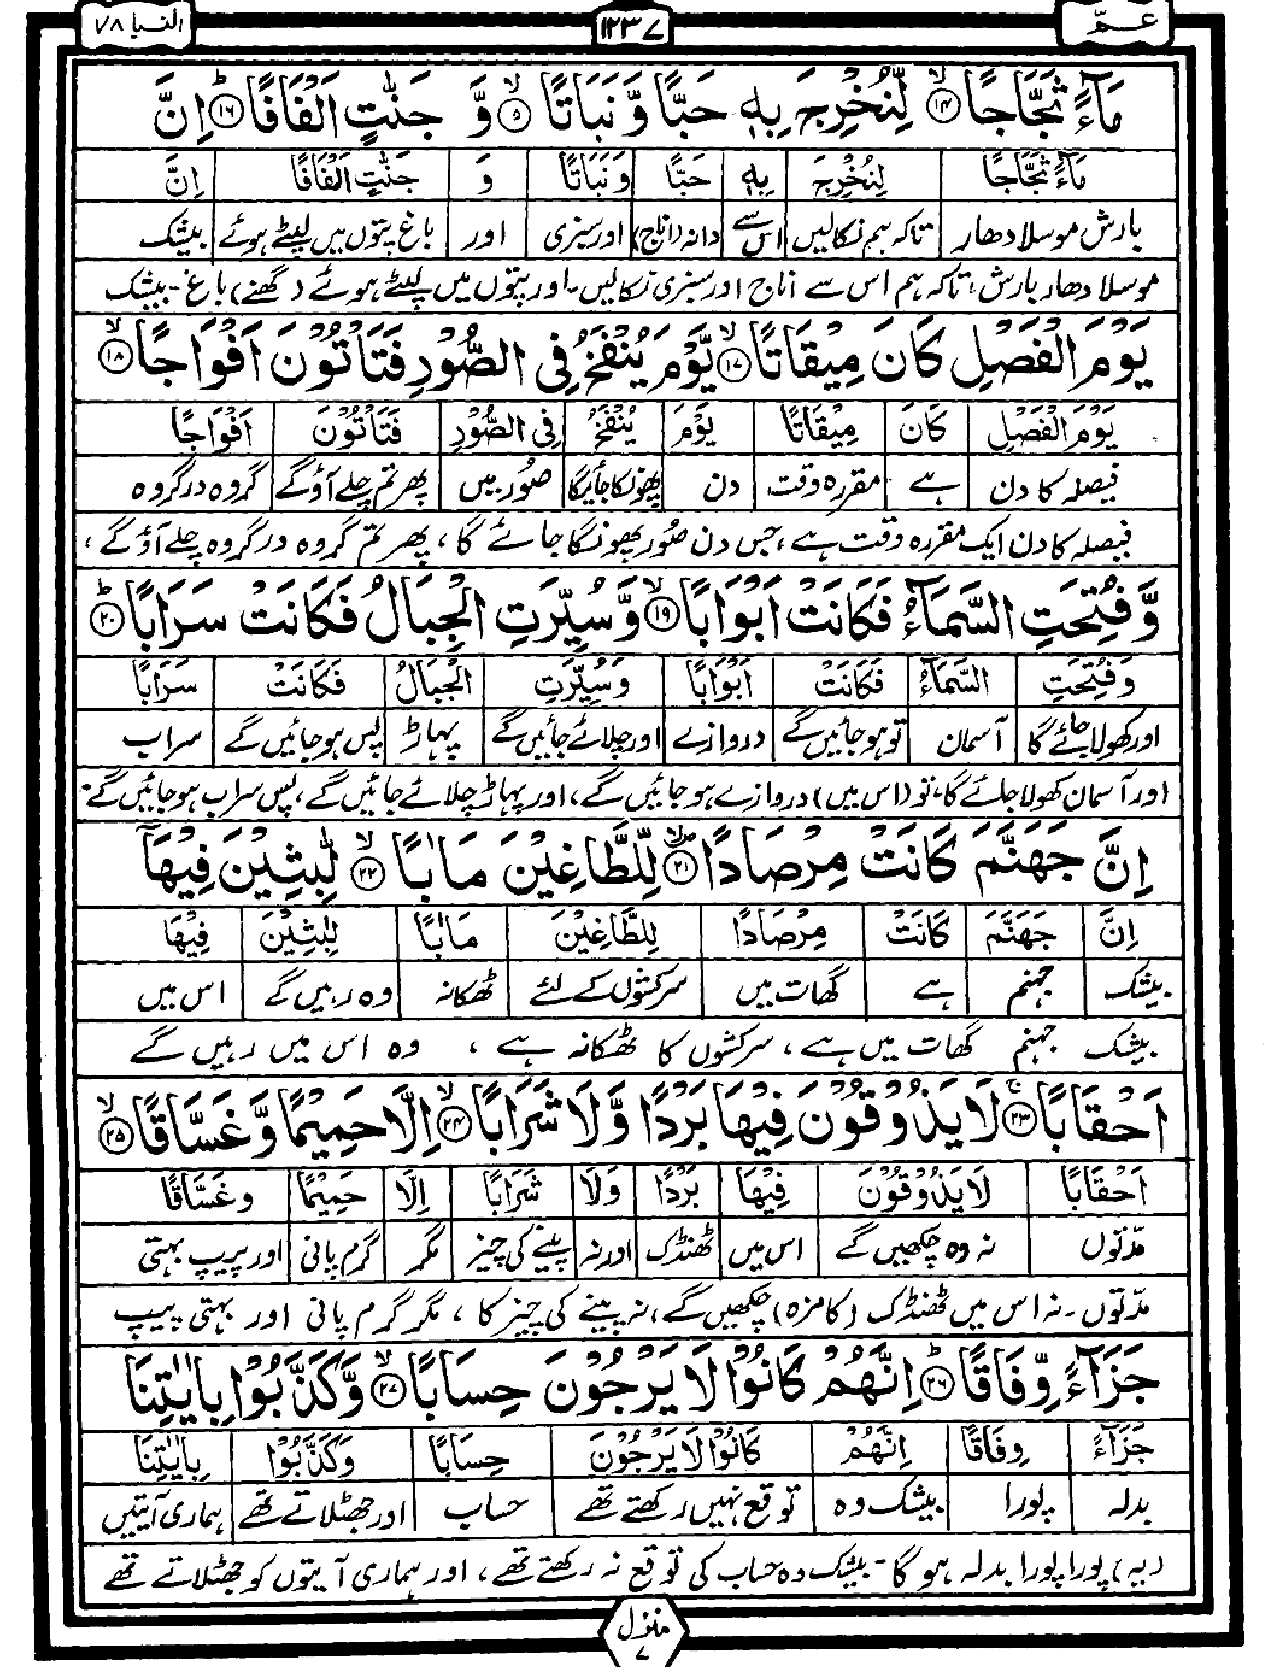 عمّ ۱۲۳۷ النبا ۷۸
مَآءً ثَجَّاجًا ۙ‏﴿۱۴﴾ لِّنُخْرِجَ بِهٖ حَبًّا وَّ نَبَاتًا ۙ‏﴿۱۵﴾ وَّ جَنّٰتٍ اَلْفَافًا ؕ‏﴿۱۶﴾ اِنَّ
مَآءً ثَجَّاجًا لِنُخْرِجَ بِهٖ حَبًّا وَنَبَاتًا وَ جَنّٰتٍ اَلْفَافًا اِنَّ
بارش موسلا دھار تاکہ ہم نکالیں اس سے دانہ (اناج) اور سبزی اور باغ پتوں میں لپٹے ہوئے بیشک
موسلا دھار بارش، تاکہ ہم اس سے اناج اور سبزی نکالیں۔ اور پتوں میں لپٹے ہوئے (گھنے) باغ۔ بیشک
يَوْمَ الْفَصْلِ كَانَ مِيْقَاتًا ۙ‏﴿۱۷﴾ يَّوْمَ يُنْفَخُ فِى الصُّوْرِ فَتَاْتُوْنَ اَفْوَاجًا ۙ‏﴿۱۸﴾
يَوْمَ الْفَصْلِ كَانَ مِيْقَاتًا يَوْمَ يُنْفَخُ فِى الصُّوْرِ فَتَاْتُوْنَ اَفْوَاجًا
فیصلہ کا دن ہے مقررہ وقت دن پھونکا جائیگا صُور میں پھر تم چلے آؤ گے گروہ در گروہ
فیصلہ کا دن ایک مقررہ وقت ہے، جس دن صُور پھونکا جائے گا، پھر تم گروہ در گروہ چلے آؤ گے،
وَّ فُتِحَتِ السَّمَآءُ فَكَانَتْ اَبْوَابًا ۙ‏﴿۱۹﴾ وَّ سُيِّرَتِ الْجِبَالُ فَكَانَتْ سَرَابًا ؕ‏﴿۲۰﴾
وَفُتِحَتِ السَّمَآءُ فَكَانَتْ اَبْوَابًا وَسُيِّرَتِ الْجِبَالُ فَكَانَتْ سَرَابًا
اور کھولا جائے گا آسمان تو ہو جائیں گے دروازے اور چلائے جائیں گے پہاڑ پس ہو جائیں گے سراب
اور آسمان کھولا جائے گا۔ تو (اس میں) دروازے ہو جائیں گے، اور پہاڑ چلائے جائیں گے، پس سراب ہو جائیں گے۔
اِنَّ جَهَنَّمَ كَانَتْ مِرْصَادًا ۙ‏﴿۲۱﴾ لِّلطَّاغِيْنَ مَاٰبًا ۙ‏﴿۲۲﴾ لّٰبِثِيْنَ فِيْهَاۤ
اِنَّ جَهَنَّمَ كَانَتْ مِرْصَادًا لِلطَّاغِيْنَ مَاٰبًا لٰبِثِيْنَ فِيْهَا
بیشک جہنم ہے گھات میں سرکشوں کے لئے ٹھکانہ وہ رہیں گے اس میں
بیشک جہنم گھات میں ہے، سرکشوں کا ٹھکانہ ہے، وہ اس میں رہیں گے
اَحْقَابًا ۚ‏﴿۲۳﴾ لَا يَذُوْقُوْنَ فِيْهَا بَرْدًا وَّلَا شَرَابًا ۙ‏﴿۲۴﴾ اِلَّا حَمِيْمًا وَّغَسَّاقًا ۙ‏﴿۲۵﴾
اَحْقَابًا لَا يَذُوْقُوْنَ فِيْهَا بَرْدًا وَّلَا شَرَابًا اِلَّا حَمِيْمًا وغَسَّاقًا
مدّتوں نہ وہ چکھیں گے اس میں ٹھنڈک اور نہ پینے کی چیز مگر گرم پانی اور پیپ بہتی
مدّتوں۔ نہ اس میں ٹھنڈک (کا مزہ) چکھیں گے، نہ پینے کی چیز کا، مگر گرم پانی اور بہتی پیپ
جَزَآءً وِّفَاقًا ؕ‏﴿۲۶﴾ اِنَّهُمْ كَانُوْا لَا يَرْجُوْنَ حِسَابًا ۙ‏﴿۲۷﴾ وَّكَذَّبُوْا بِاٰيٰتِنَا
جَزَآءً وِفَاقًا اِنَّهُمْ كَانُوْا لَا يَرْجُوْنَ حِسَابًا وَكَذَّبُوْا بِاٰيٰتِنَا
بدلہ پورا بیشک وہ توقع نہیں رکھتے تھے حساب اور جھٹلاتے تھے ہماری آیتیں
(یہ) پورا پورا بدلہ ہو گا۔ بیشک وہ حساب کی توقع نہ رکھتے تھے، اور ہماری آیتوں کو جھٹلاتے تھے
منزل ۷